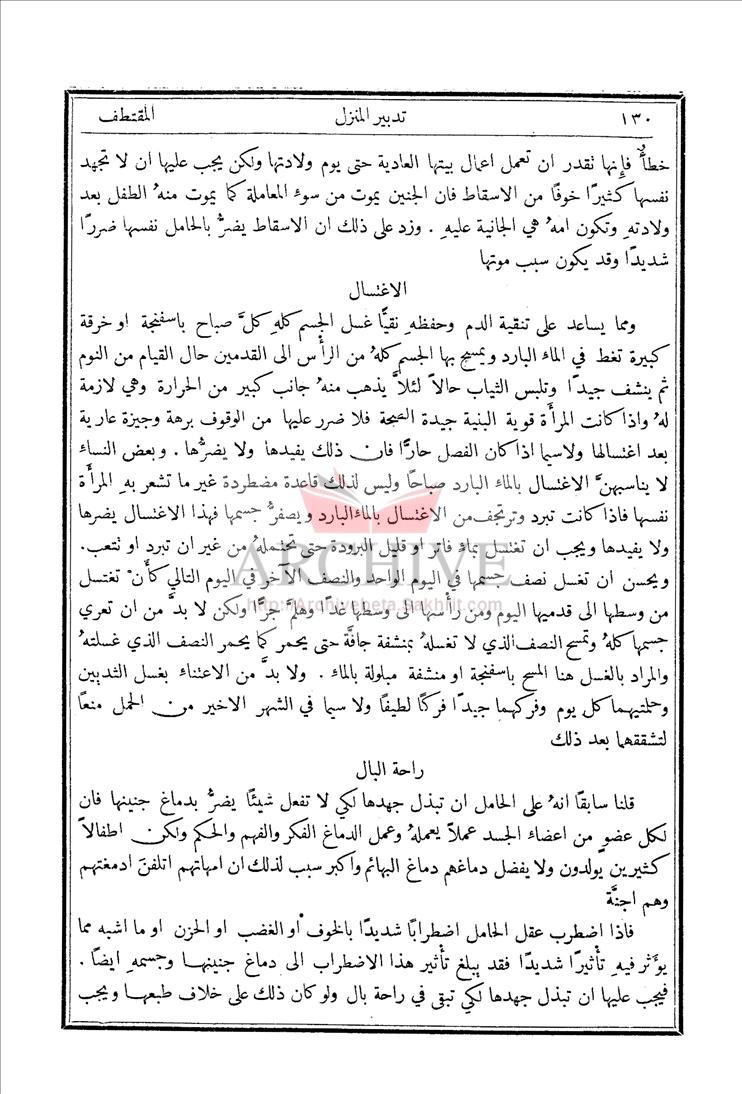 ١٣٠ تدبير المنزل المقتطف
خطأٌ فإنها تقدر ان تعمل اعمال بيتها العادية حتى يوم ولادتها ولكن يجب عليها ان لا تجهد
نفسها كثيرًا خوفًا من الاسقاط فان الجنين يموت من سوء المعاملة كما يموت منهُ الطفل بعد
ولادتهِ وتكون امهُ هي الجانية عليهِ . وزد على ذلك ان الاسقاط يضرُّ بالحامل نفسها ضررًا
شديدًا وقد يكون سبب موتها
الاغتسال
ومما يساعد على تنقية الدم وحفظهِ نقيًّا غسل الجسم كلهِ كلَّ صباح باسفنجة او خرقة
كبيرة تغط في الماء البارد ويمسح بها الجسم كلهُ من الرأس الى القدمين حال القيام من النوم
ثم ينشف جيدًا وتلبس الثياب حالاً لئلاَّ يذهب منهُ جانب كبير من الحرارة وهي لازمة
لهُ واذا كانت المرأة قوية البنية جيدة الصحة فلا ضرر عليها من الوقوف برهة وجيزة عارية
بعد اغتسالها ولاسيما اذا كان الفصل حارًّا فان ذلك يفيدها ولا يضرُّها . وبعض النساء
لا يناسبهنَّ الاغتسال بالماء البارد صباحًا وليس لذلك قاعدة مضطردة غير ما تشعر بهِ المرأة
نفسها فاذا كانت تبرد وترتجف من الاغتسال بالماء البارد ويصفرُّ جسمها فهذا الاغتسال يضرها
ولا يفيدها ويجب ان تغتسل بماء فاتر او قليل البرودة حتى تحتملهُ من غير ان تبرد او تتعب.
ARCHIVE
ويحسن ان تغسل نصف جسمها في اليوم الواحد والنصف الآخر في اليوم التالي كأنْ تغتسل
http://Archivebeta.Sakhrit.com
من وسطها الى قدميها اليوم ومن رأسها الى وسطها غدًا وهلمَّ جرًّا ولكن لا بدَّ من ان تعري
جسمها كلهُ وتمسح النصف الذي لا تغسلهُ بمنشفة جافَّة حتى يحمر كما يحمر النصف الذي غسلتهُ
والمراد بالغسل هنا المسح باسفنجة او منشفة مبلولة بالماء . ولا بدَّ من الاعتناء بغسل الثديين
وحلمتيهما كل يوم وفركهما جيدًا فركًا لطيفًا ولا سيما في الشهر الاخير من الحمل منعًا
لتشققها بعد ذلك
راحة البال
قلنا سابقًا انهُ على الحامل ان تبذل جهدها لكي لا تفعل شيئًا يضرُّ بدماغ جنينها فان
لكل عضوٍ من اعضاء الجسد عملاً يعملهُ وعمل الدماغ الفكر والفهم والحكم ولكن اطفالاً
كثيرين يولدون ولا يفضل دماغهم دماغ البهائم واكبر سبب لذلك ان امهاتهم اتلفنَ ادمغتهم
وهم اجنَّة
فاذا اضطرب عقل الحامل اضطرابًا شديدًا بالخوف او الغضب او الحزن او ما اشبه مما
يؤثر فيهِ تأثيرًا شديدًا فقد يبلغ تأثير هذا الاضطراب الى دماغ جنينها وجسمهِ ايضًا .
فيجب عليها ان تبذل جهدها لكي تبقى في راحة بال ولو كان ذلك على خلاف طبعها ويجب